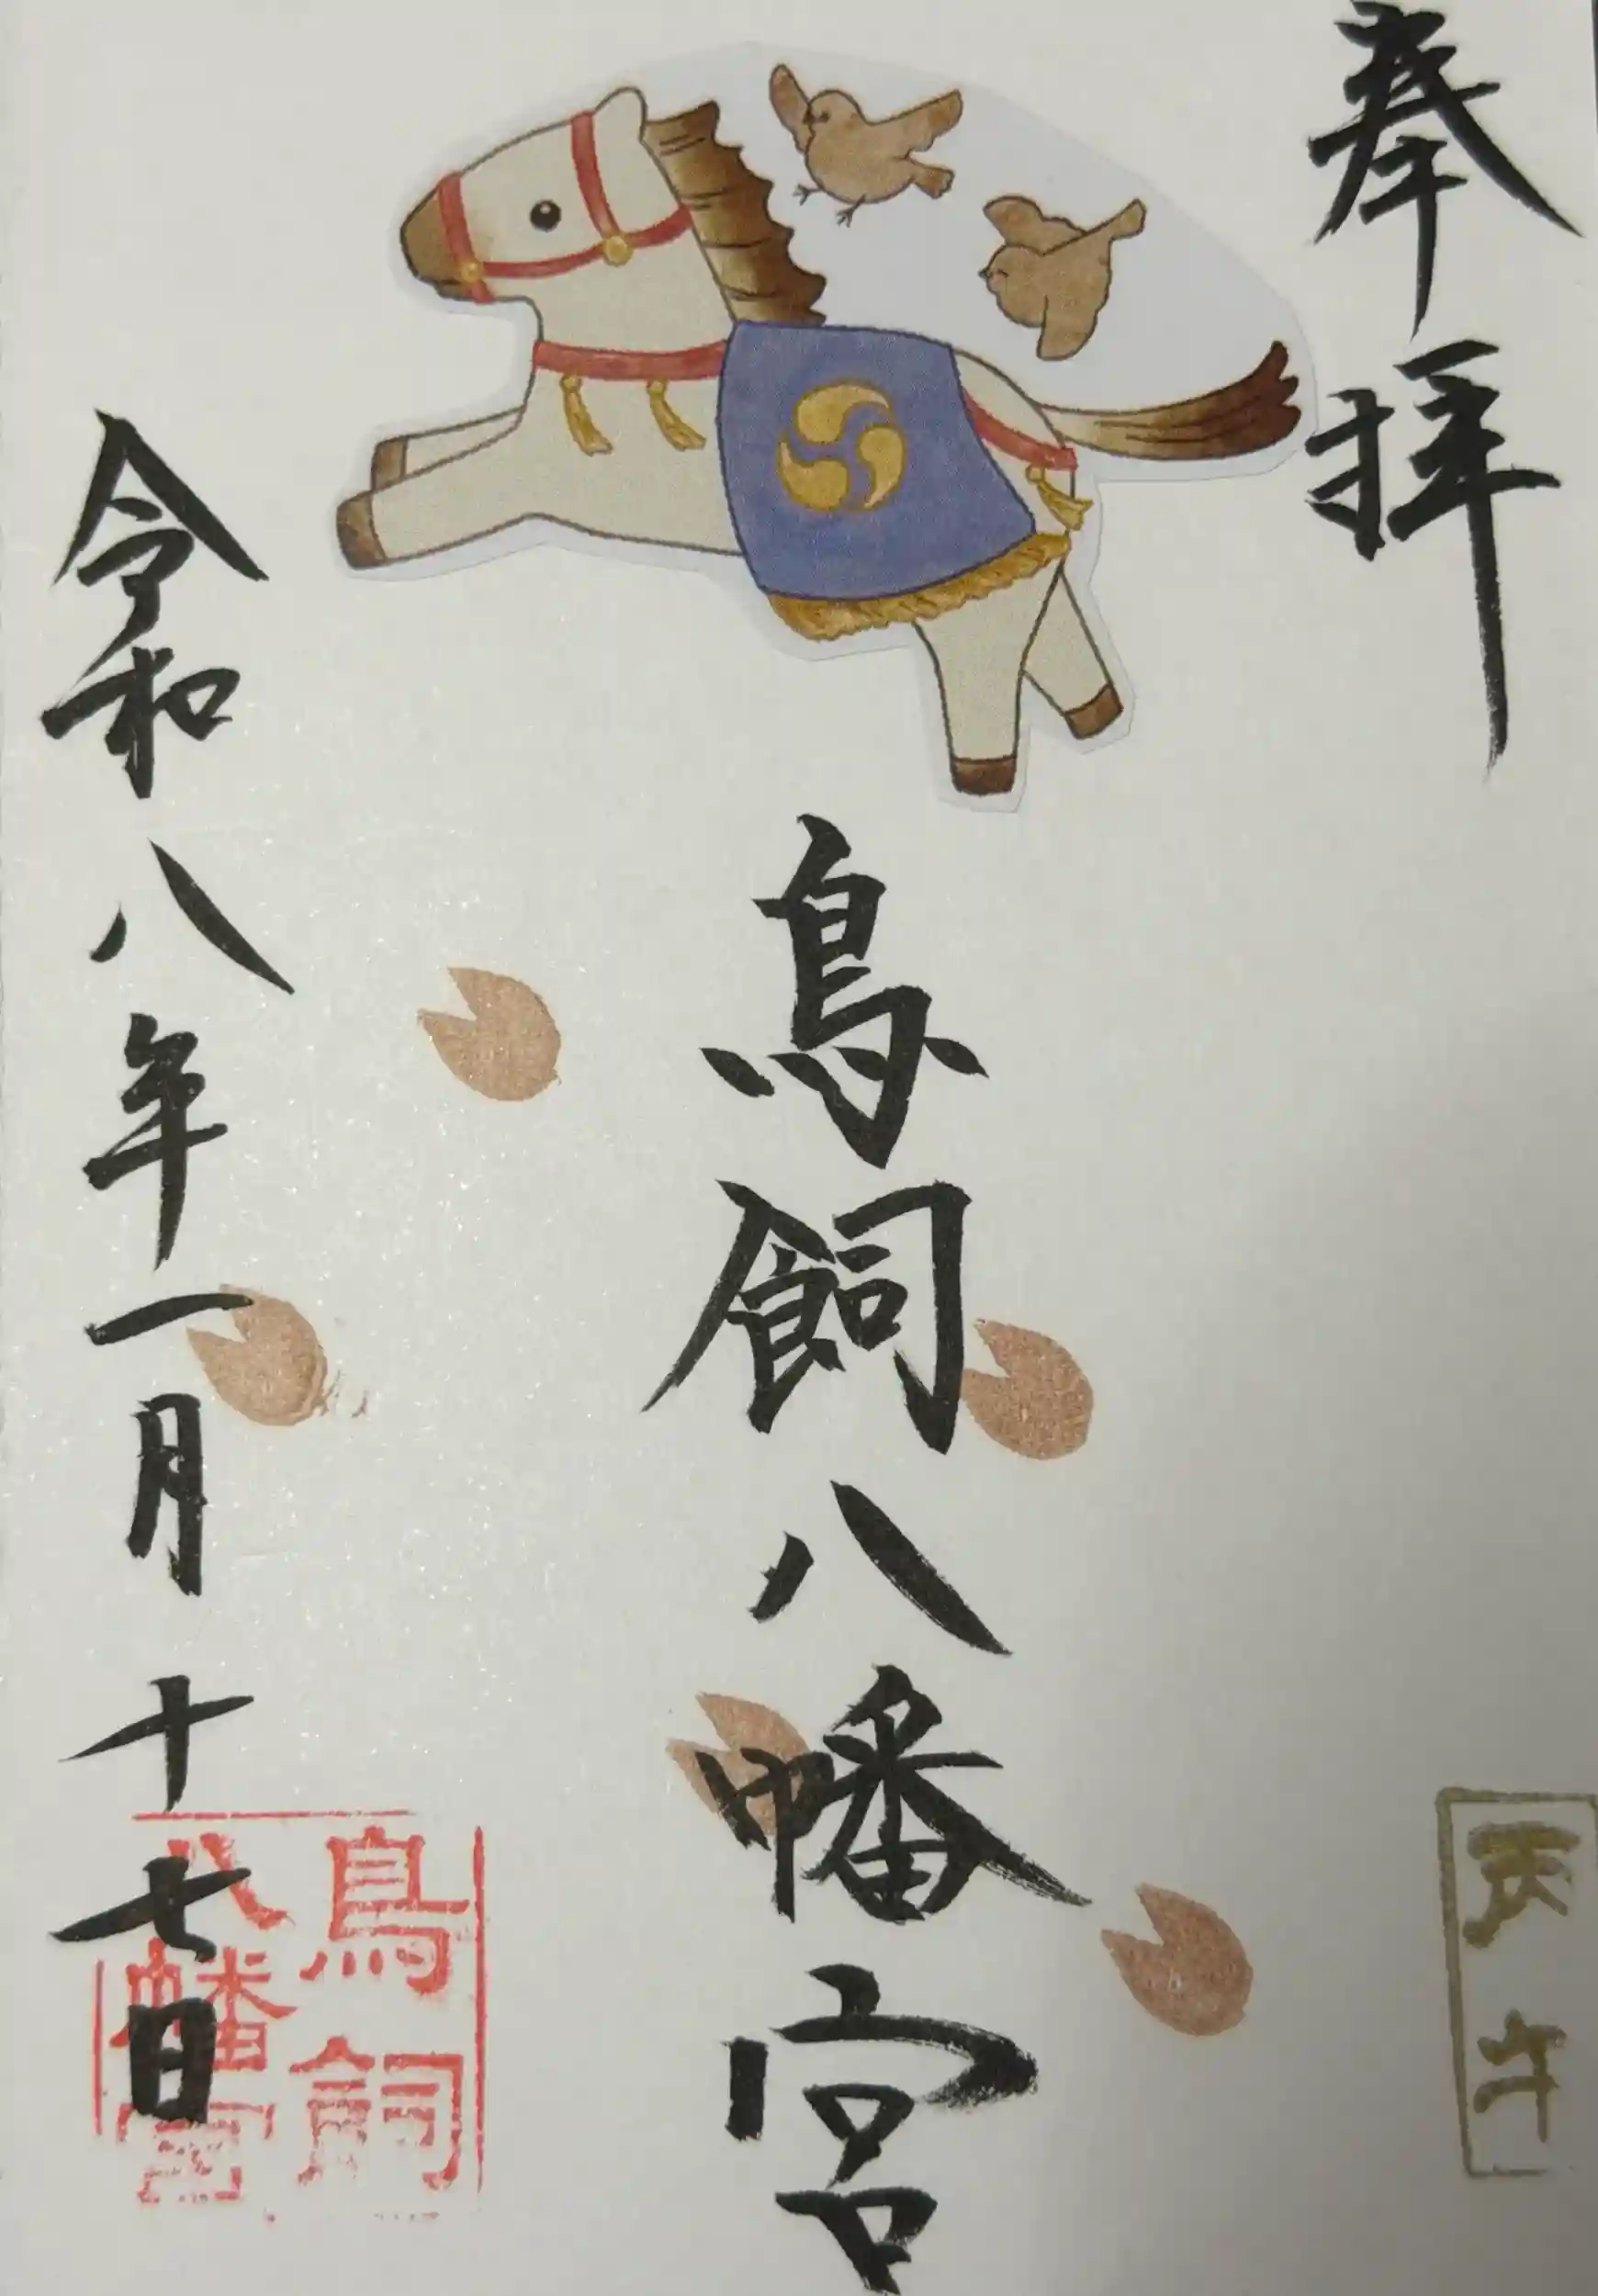 奉拝
丙午
鳥飼八幡宮
鳥飼
八幡宮
令和八年一月十七日